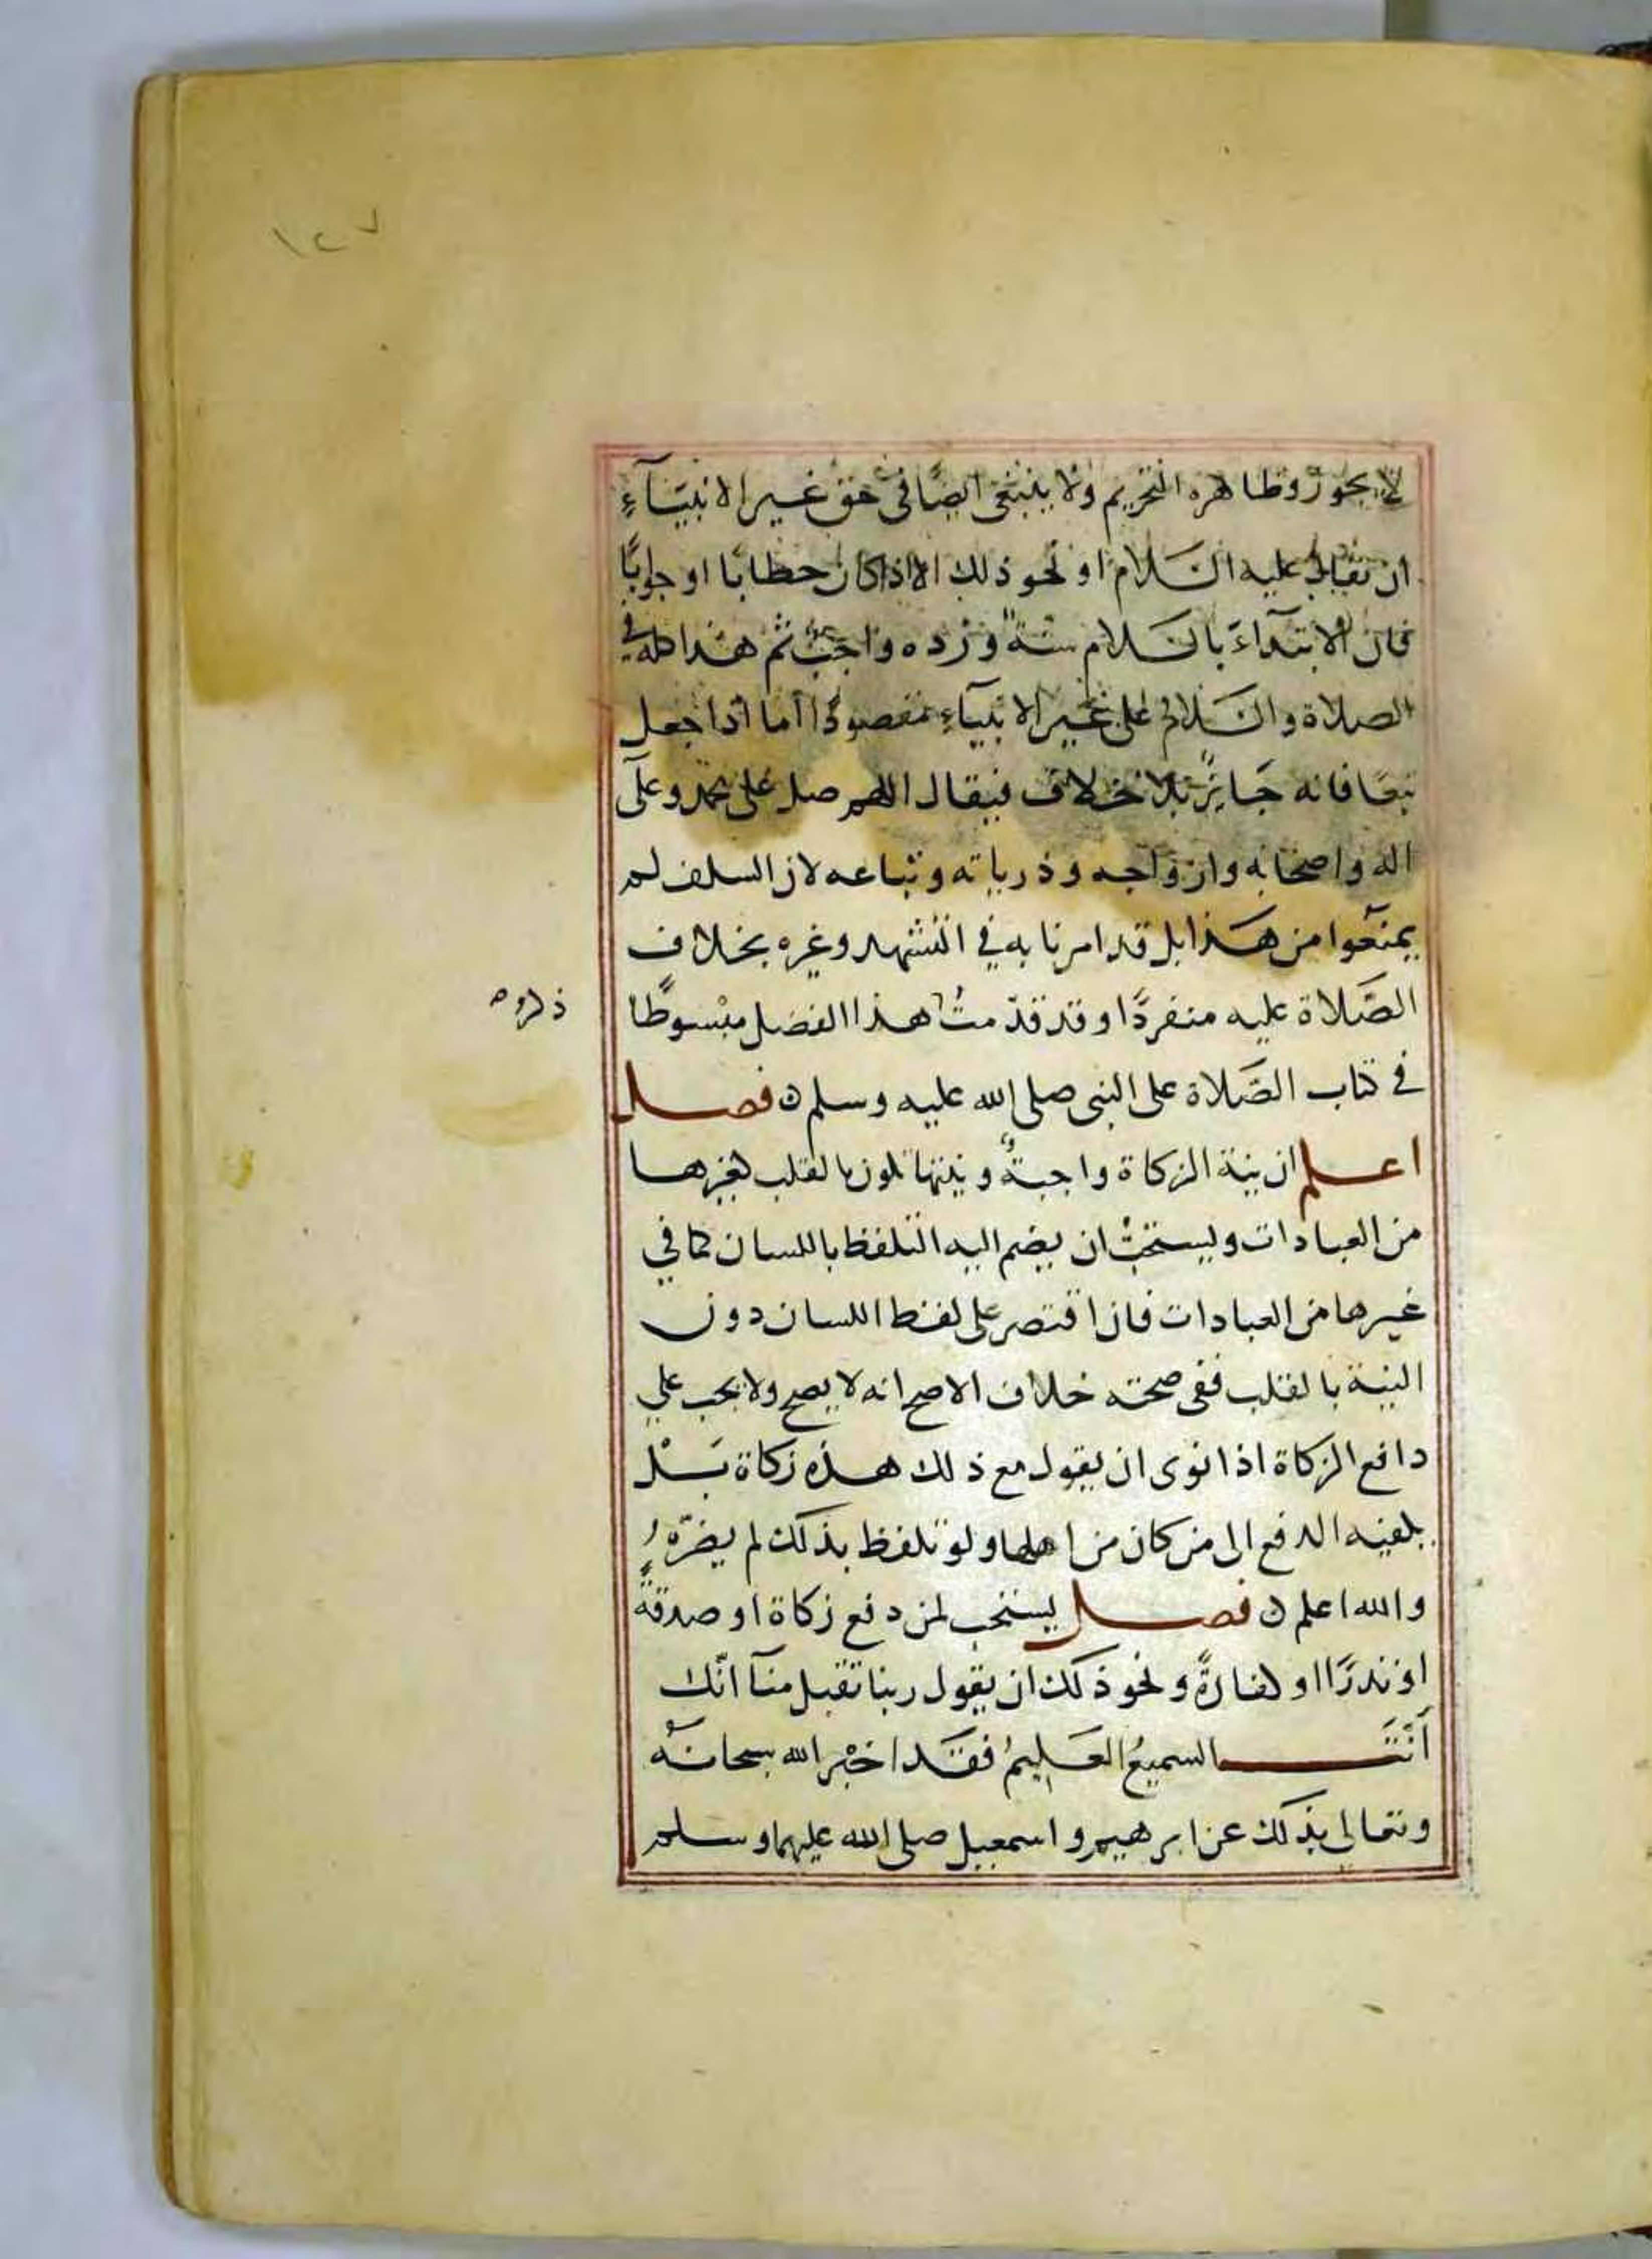 ١٢٧
لا يجوز وظاهره التحريم ولا ينبغي ايضًا في حق غير الانبيآءِ
ان يقال عليه السَلام او نحو ذلك الا اذا كان خطابًا او جوابًا
فان الابتدآءَ بالسَلام سنةٌ ورده واجبٌ ثم هذا كله في
الصلاة والسَلام على غير الانبيآءِ مقصودًا اما اذا جعل
تبعًا فانه جَايزٌ بلا خلاف فيقال اللهم صل على محمد وعلى
اله واصحابه وازواجه وذرياته وتباعه لان السلف لم
يمنعوا من هَذا بل قد امرنا به في التشهد وغيره بخلاف
الصَّلاة عليه منفردًا وقد قدّمتُ هذا الفصل مبْسوطًا
ذكره
في كتاب الصَّلاة على النبي صلى الله عليه وسلم ن فصل
اعلم ان نية الزكاة واجبةٌ ونيتها تكون بالقلب كغيرها
من العبادات ويستحبُّ ان يضم اليه التلفظ باللسان كما في
غيرها من العبادات فان اقتصر على لفظ اللسان دون
النية بالقلب ففي صحته خلاف الاصح انه لا يصح ولا يجب على
دافع الزكاة اذا نوى ان يقول مع ذلك هذه زكاة بَلْ
يكفيه الدفع الى من كان من اهلها ولو تلفظ بذلك لم يضرّهُ
والله اعلم ن فصل يستحب لمن دفع زكاة او صدقةً
او نذرًا او كفارةً ونحو ذلك ان يقول ربنا تقبل منآ انّك
أنتَ السميعُ العَليمُ فقَد اخْبر الله سبحانهُ
وتعالى بذلك عن ابرهيم واسمعيل صلى الله عليهما وسلم